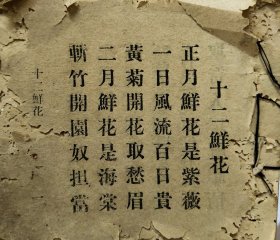 十二鮮花
正月鮮花是紫薇
一日風流百日貴
黃菊開花取愁眉
二月鮮花是海棠
斬竹開園奴担當
十二鮮花